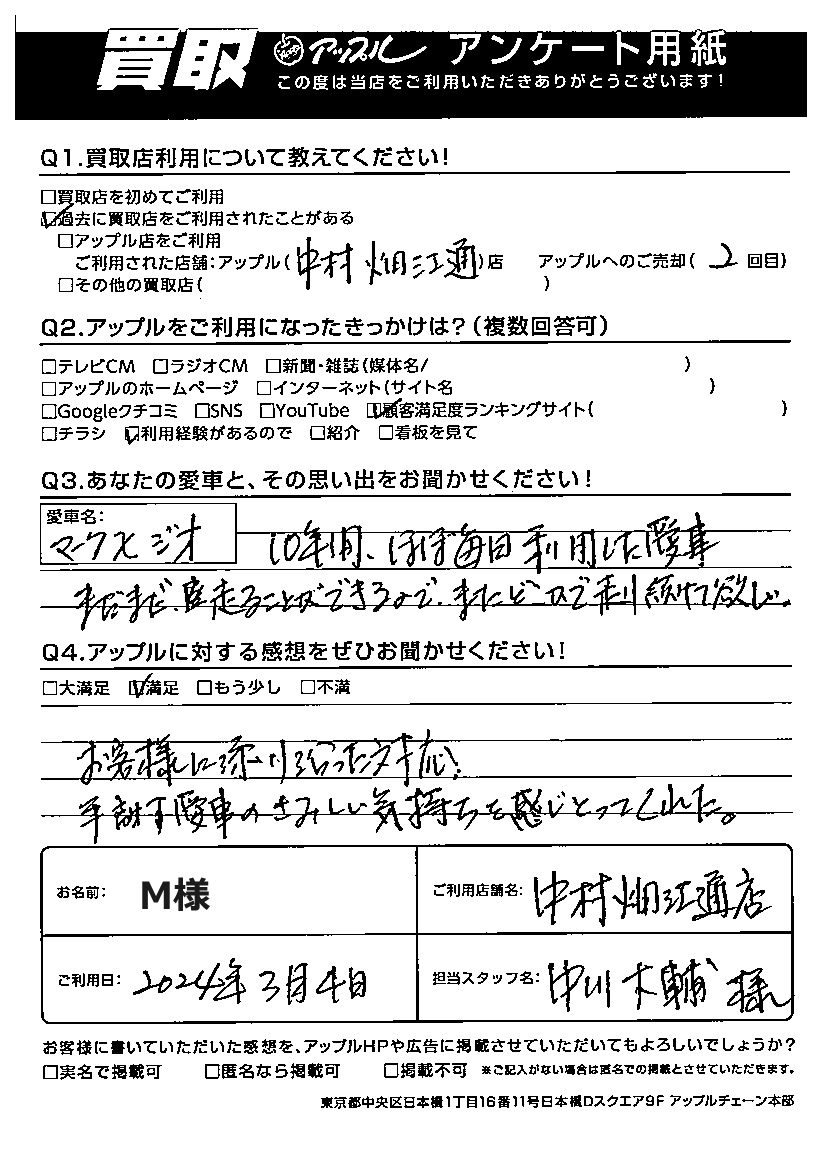 買取 アップル アンケート用紙
この度は当店をご利用いただきありがとうございます!
Q1.買取店利用について教えてください!
□買取店を初めてご利用
☑過去に買取店をご利用されたことがある
□アップル店をご利用
ご利用された店舗:アップル(中村畑江通)店 アップルへのご売却( 2 回目)
□その他の買取店( )
Q2.アップルをご利用になったきっかけは?(複数回答可)
□テレビCM □ラジオCM □新聞・雑誌(媒体名/ )
□アップルのホームページ □インターネット(サイト名 )
□Googleクチコミ □SNS □YouTube ☑顧客満足度ランキングサイト( )
□チラシ ☑利用経験があるので □紹介 □看板を見て
Q3.あなたの愛車と、その思い出をお聞かせください!
愛車名:
マークX ジオ 10年間、ほぼ毎日利用した愛車
まだまだ、走ることができるので、またどこかで走り続けて欲しい。
Q4.アップルに対する感想をぜひお聞かせください!
□大満足 ☑満足 □もう少し □不満
お客様に添った対応!
手離す愛車のさみしい気持ちを感じとってくれた。
お名前: M様 ご利用店舗名: 中村畑江通店
ご利用日: 2024年3月4日 担当スタッフ名: 中川大輔 様
お客様に書いていただいた感想を、アップルHPや広告に掲載させていただいてもよろしいでしょうか?
□実名で掲載可 □匿名なら掲載可 □掲載不可 ※ご記入がない場合は匿名での掲載とさせていただきます。
東京都中央区日本橋1丁目16番11号日本橋Dスクエア9F アップルチェーン本部